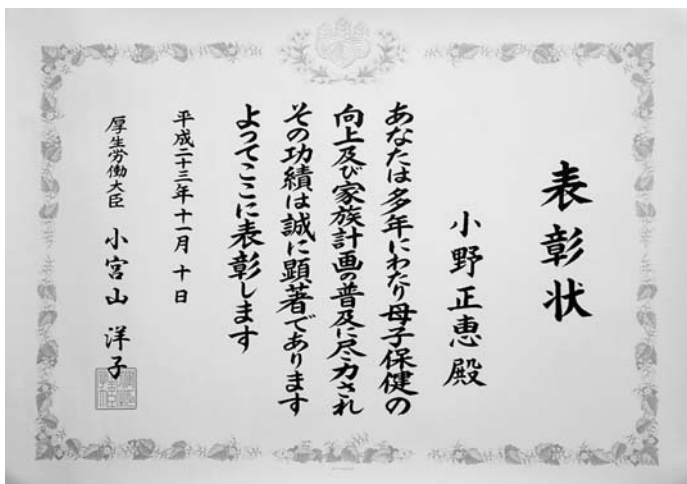 表彰状
小野正恵殿
あなたは多年にわたり母子保健の
向上及び家族計画の普及に尽力され
その功績は誠に顕著であります
よってここに表彰します
平成二十三年十一月十日
厚生労働大臣 小宮山洋子